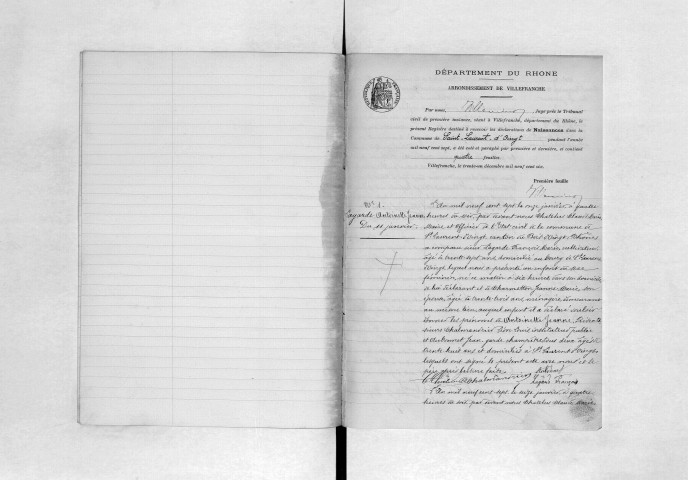 DÉPARTEMENT DU RHONE
ARRONDISSEMENT DE VILLEFRANCHE
Par nous, Juge près le Tribunal
civil de première instance, séant à Villefranche, département du Rhône, le
présent Registre destiné à recevoir les déclarations de Naissances dans la
Commune de Saint Laurent d'Oingt pendant l'année
mil neuf cent sept, a été coté et paraphé par première et dernière, et contient
quatre feuilles
Villefranche, le trente-un décembre mil neuf cent six.
Première feuille
N° 1.
Lagarde Antoinette Jeanne
Du 11 janvier
L'an mil neuf cent sept le onze janvier à quatre
heures du soir, par devant nous Chatelus Claude Marie
Maire et Officier de l'Etat civil de la commune de
St Laurent d'Oingt canton du Bois d'Oingt Rhône
a comparu sieur Lagarde François Marie, cultivateur
âgé de trente sept ans domicilié au bourg de St Laurent
d'Oingt lequel nous a présenté un enfant du sexe
féminin, né ce matin à dix heures dans son domicile
de lui déclarant et de Charmetton Jeanne Marie son
épouse, âgée de trente trois ans, ménagère demeurant
au même lieu, auquel enfant il a déclaré vouloir
donner les prénoms de Antoinette Jeanne. Présents
sieurs Chalmandrier instituteur public
et Jean, garde champêtre tous deux âgés de
trente huit ans et domiciliés à St Laurent d'Oingt
lesquels ont signé le présent acte avec nous et le
père après lecture faite.
Lagarde François
L'an mil neuf cent sept le onze janvier à quatre
heures du soir, par devant nous Chatelus Claude Marie